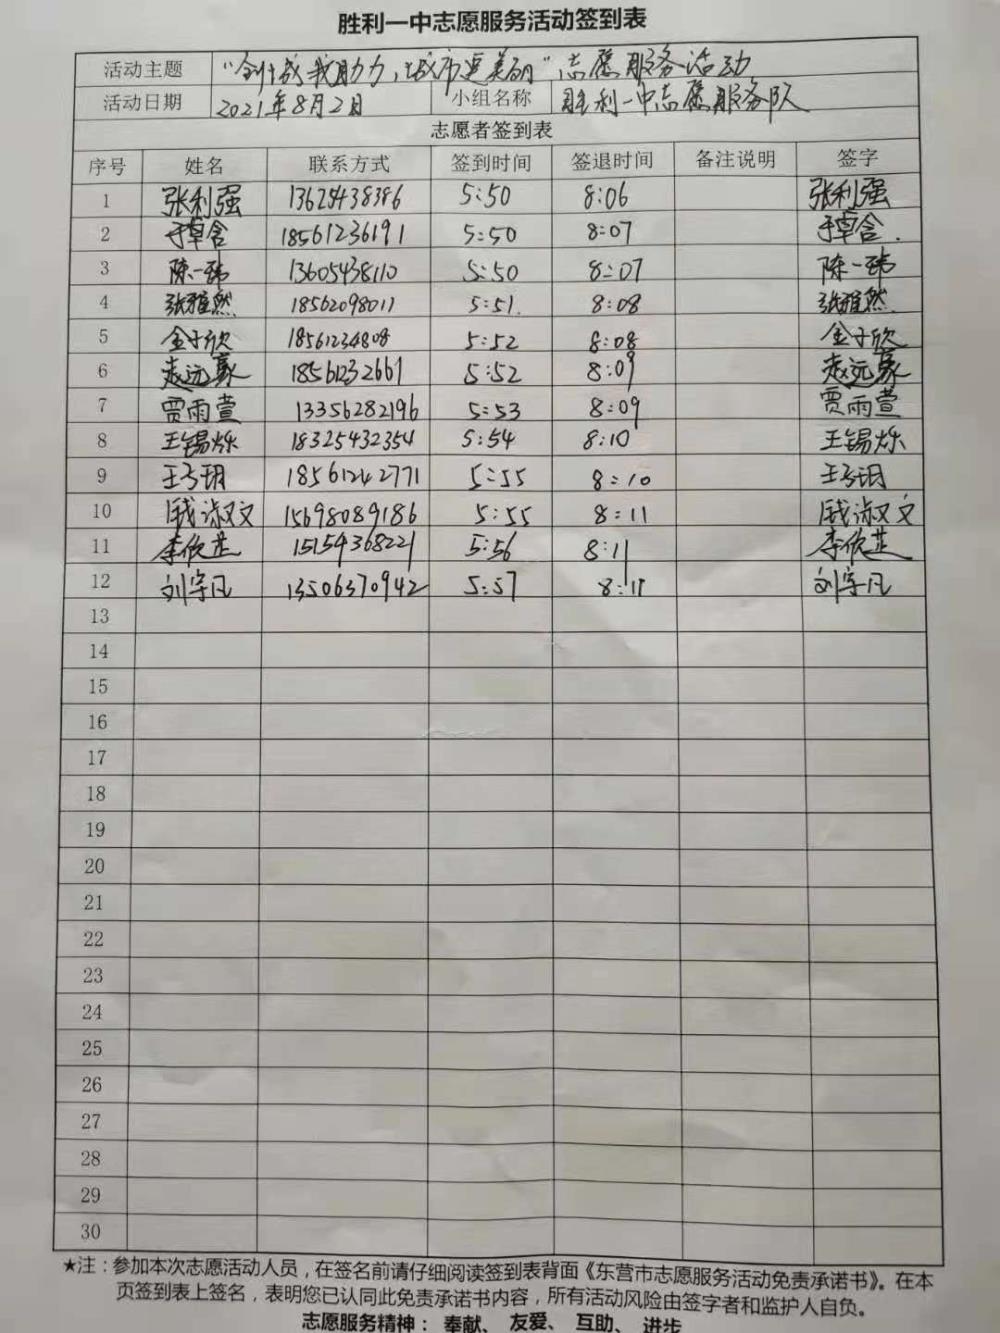 胜利一中志愿服务活动签到表
活动主题 “创城我助力,城市更美丽”志愿服务活动
活动日期 2021年8月2日 小组名称 胜利一中志愿服务队
志愿者签到表
序号 姓名 联系方式 签到时间 签退时间 备注说明 签字
1 张利强 13625438386 5:50 8:06 张利强
2 于卓含 18561236191 5:50 8:07 于卓含.
3 陈一玮 13605438110 5:50 8:07 陈一玮
4 张雅然 18562098011 5:51. 8:08 张雅然
5 金子欣 18561234808 5:52 8:08 金子欣
6 赵远豪 18561232661 5:52 8:09 赵远豪
7 贾雨萱 13356282196 5:53 8:09 贾雨萱
8 王锡烁 18325432354 5:54 8:10 王锡烁
9 王子玥 18561242771 5:55 8:10 王子玥
10 淑文 15698089186 5:55 8:11 淑文
11 李欣芷 15154368221 5:56 8:11 李欣芷
12 刘宇凡 13506370942 5:57 8:11 刘宇凡
13
14
15
16
17
18
19
20
21
22
23
24
25
26
27
28
29
30
★注：参加本次志愿活动人员，在签名前请仔细阅读签到表背面《东营市志愿服务活动免责承诺书》。在本
页签到表上签名，表明您已认同此免责承诺书内容，所有活动风险由签字者和监护人自负。
志愿服务精神： 奉献、 友爱、 互助、 进步